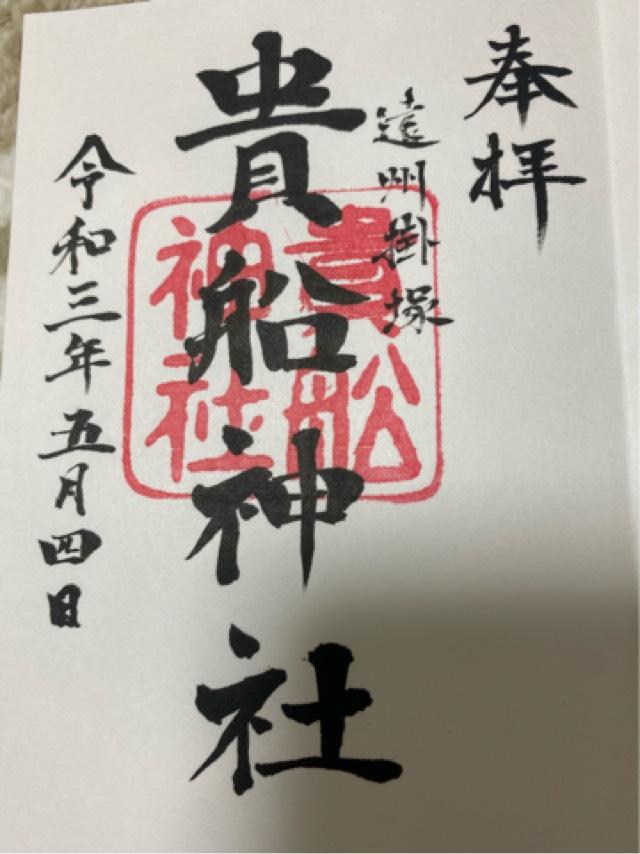 奉拝
遠州掛塚
貴船神社
貴船
神社
令和三年五月四日